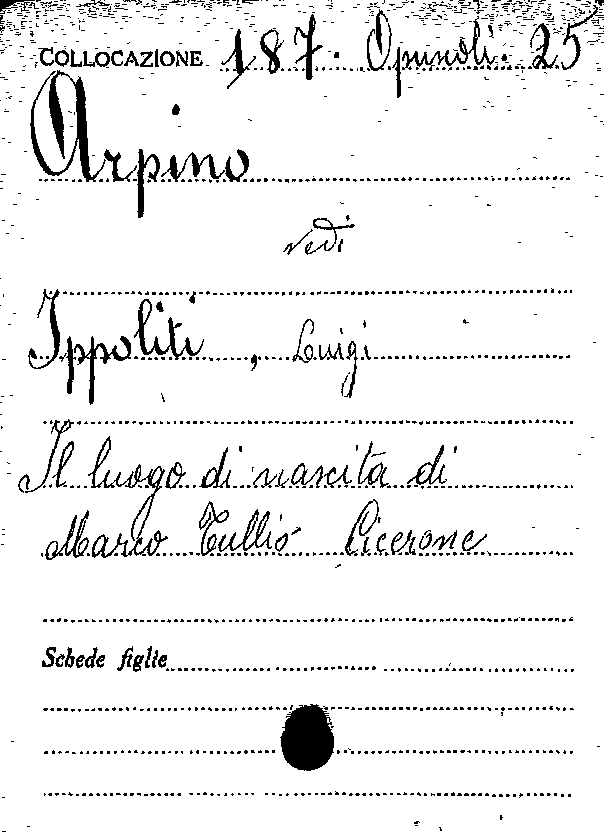 COLLOCAZIONE 187. Opuscoli. 25
Arpino
vedi
Ippoliti, Luigi
Il luogo di nascita di
Marco Tullio Cicerone
Schede figlie